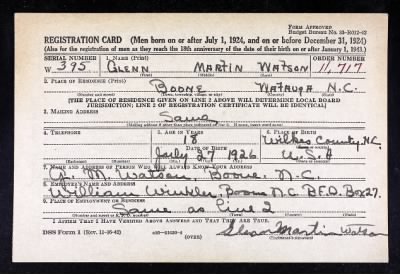 FORM APPROVED
Budget Bureau No. 33-R012-42
REGISTRATION CARD (Men born on or after July 1, 1924, and on or before December 31, 1924)
(Also for the registration of men as they reach the 18th anniversary of the date of their birth on or after January 1, 1943.)
SERIAL NUMBER 1. NAME (Print) ORDER NUMBER
W 395 GLENN MARTIN WATSON 11,717
(First) (Middle) (Last)
2. PLACE OF RESIDENCE (Print)
BOONE WATAUGA N.C.
(Number and street) (Town, township, village, or city) (County) (State)
[THE PLACE OF RESIDENCE GIVEN ON LINE 2 ABOVE WILL DETERMINE LOCAL BOARD
JURISDICTION; LINE 2 OF REGISTRATION CERTIFICATE WILL BE IDENTICAL]
3. MAILING ADDRESS
Same
(Mailing address if other than place indicated on line 2. If same, insert word same)
4. TELEPHONE 5. AGE IN YEARS 6. PLACE OF BIRTH
18 Wilkes County, N.C.
DATE OF BIRTH
July 27 1926 U.S.A
7. NAME AND ADDRESS OF PERSON WHO WILL ALWAYS KNOW YOUR ADDRESS
M. Watson, Boone, N.C.
8. EMPLOYER'S NAME AND ADDRESS
William Winkler, Boone N.C. R.F.D. Box 27.
9. PLACE OF EMPLOYMENT OR BUSINESS
Same as Line 2
I AFFIRM THAT I HAVE VERIFIED ABOVE ANSWERS AND THAT THEY ARE TRUE.
DSS FORM 1 (Rev. 11-16-42) (OVER) Glenn Martin Watson
(Registrant's signature)